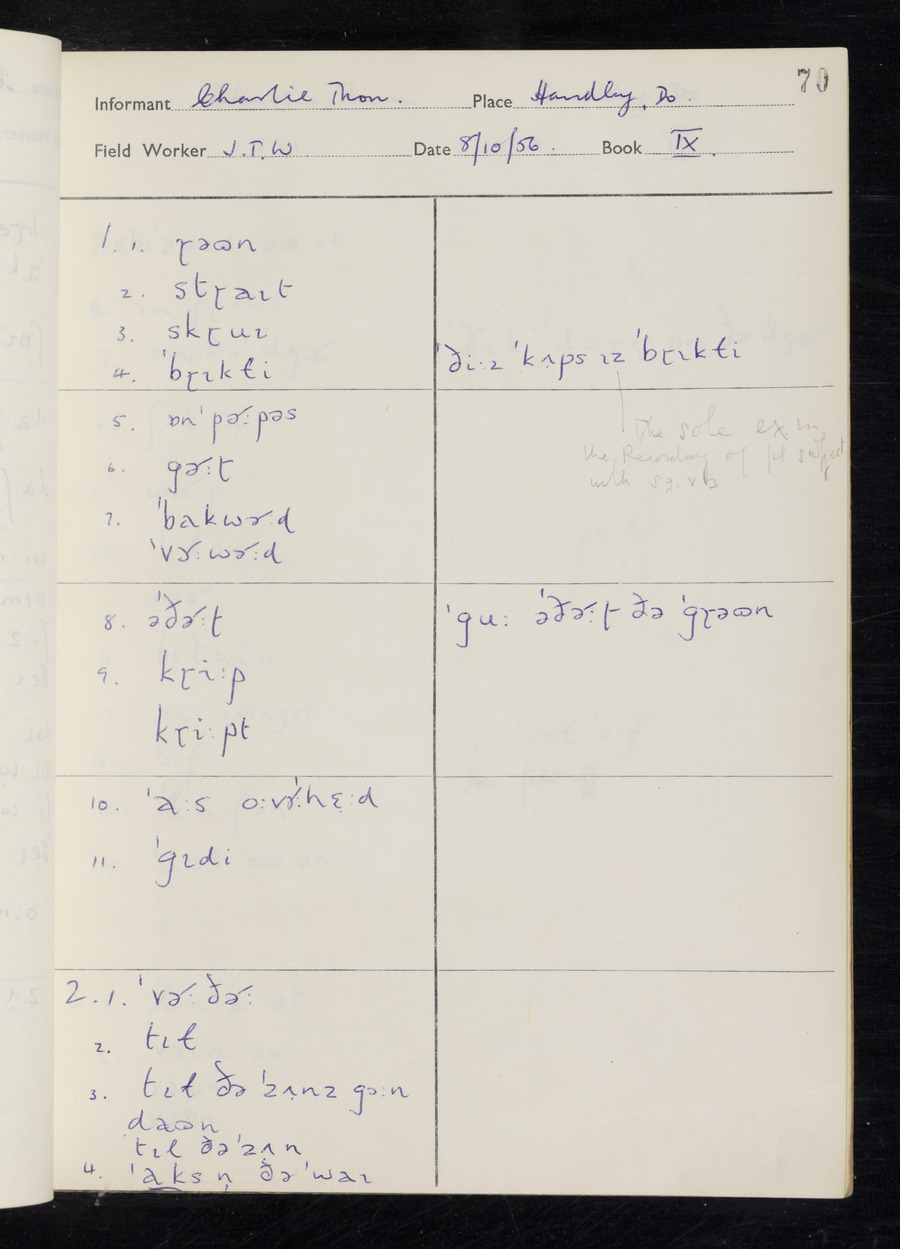 70
Informant Charlie Thon. Place Handley, Do.
Field Worker J.T.W. Date 8/10/56. Book IX.
1. 1. ɽəɷn
2. stɽaɪt
3. skɽuɪ
4. ˈbɽɪkɫi ˈðiːz ˈkʌps ɪz ˈbɽɪkɫi
The sole ex. in
the Recording of pl subject
with sg. vb
5. ɒnˈpəʳːpəs
6. gəʳːɽ
7. ˈbakwəʳːd
ˈvəʳːwəʳːd
8. əˈðəʳːt ˈguː əˈðəʳːt ðə ˈgɽəɷn
9. kɽiːp
kɽiːpt
10. ˈaːs oːvəʳːˈhɛːd
11. ˈgɪdi
2. 1. ˈvəʳːðəʳː
2. tɪɫ
3. tɪɫ ðə ˈzʌnz gɔːn
daɷn
tɪl ðə ˈzʌn
4. ˈaks n̩ ðə ˈwaɪ